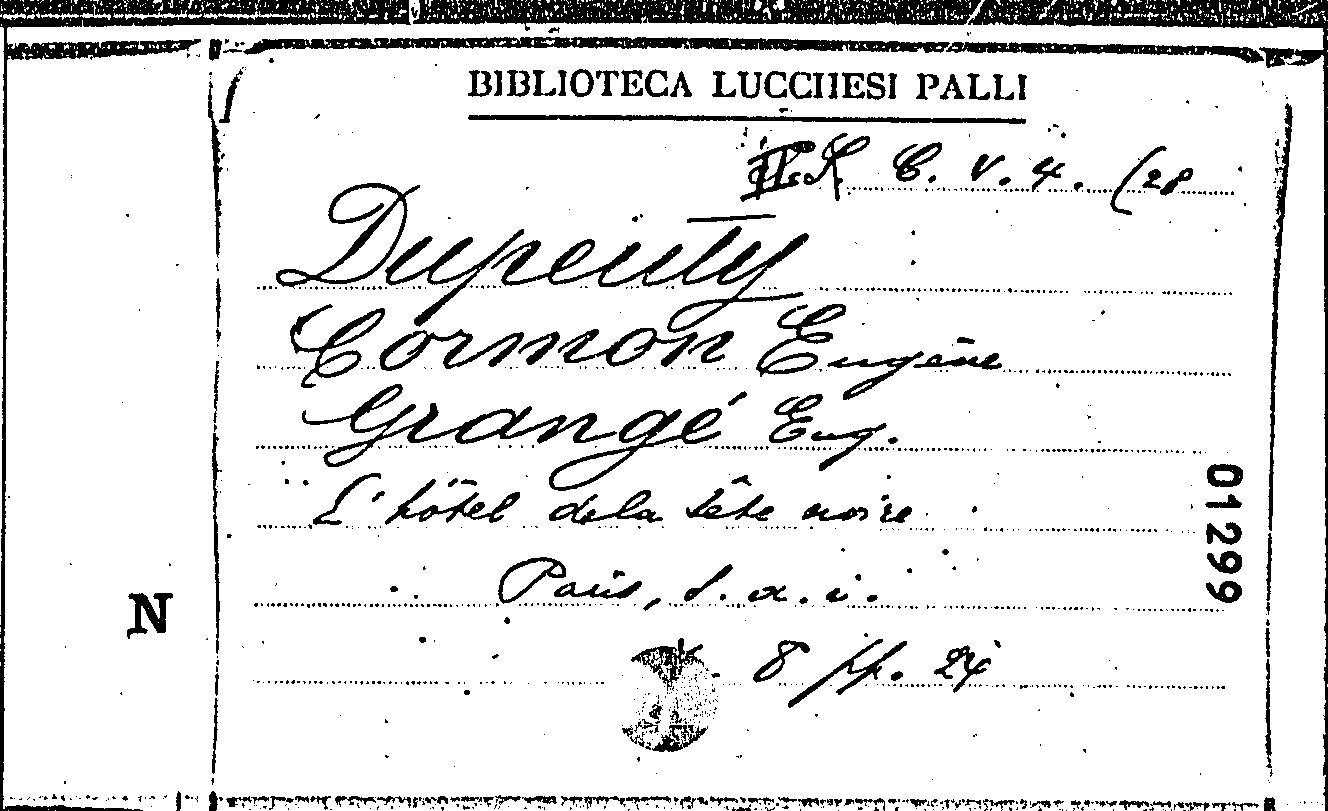 BIBLIOTECA LUCCHESI PALLI
C. V. 4. (28
Dupeuty
Cormon Eugène
Grangé Eug.
L'hôtel de la tête noire
Paris, s. a. i.
8 pp. 24
N
01299